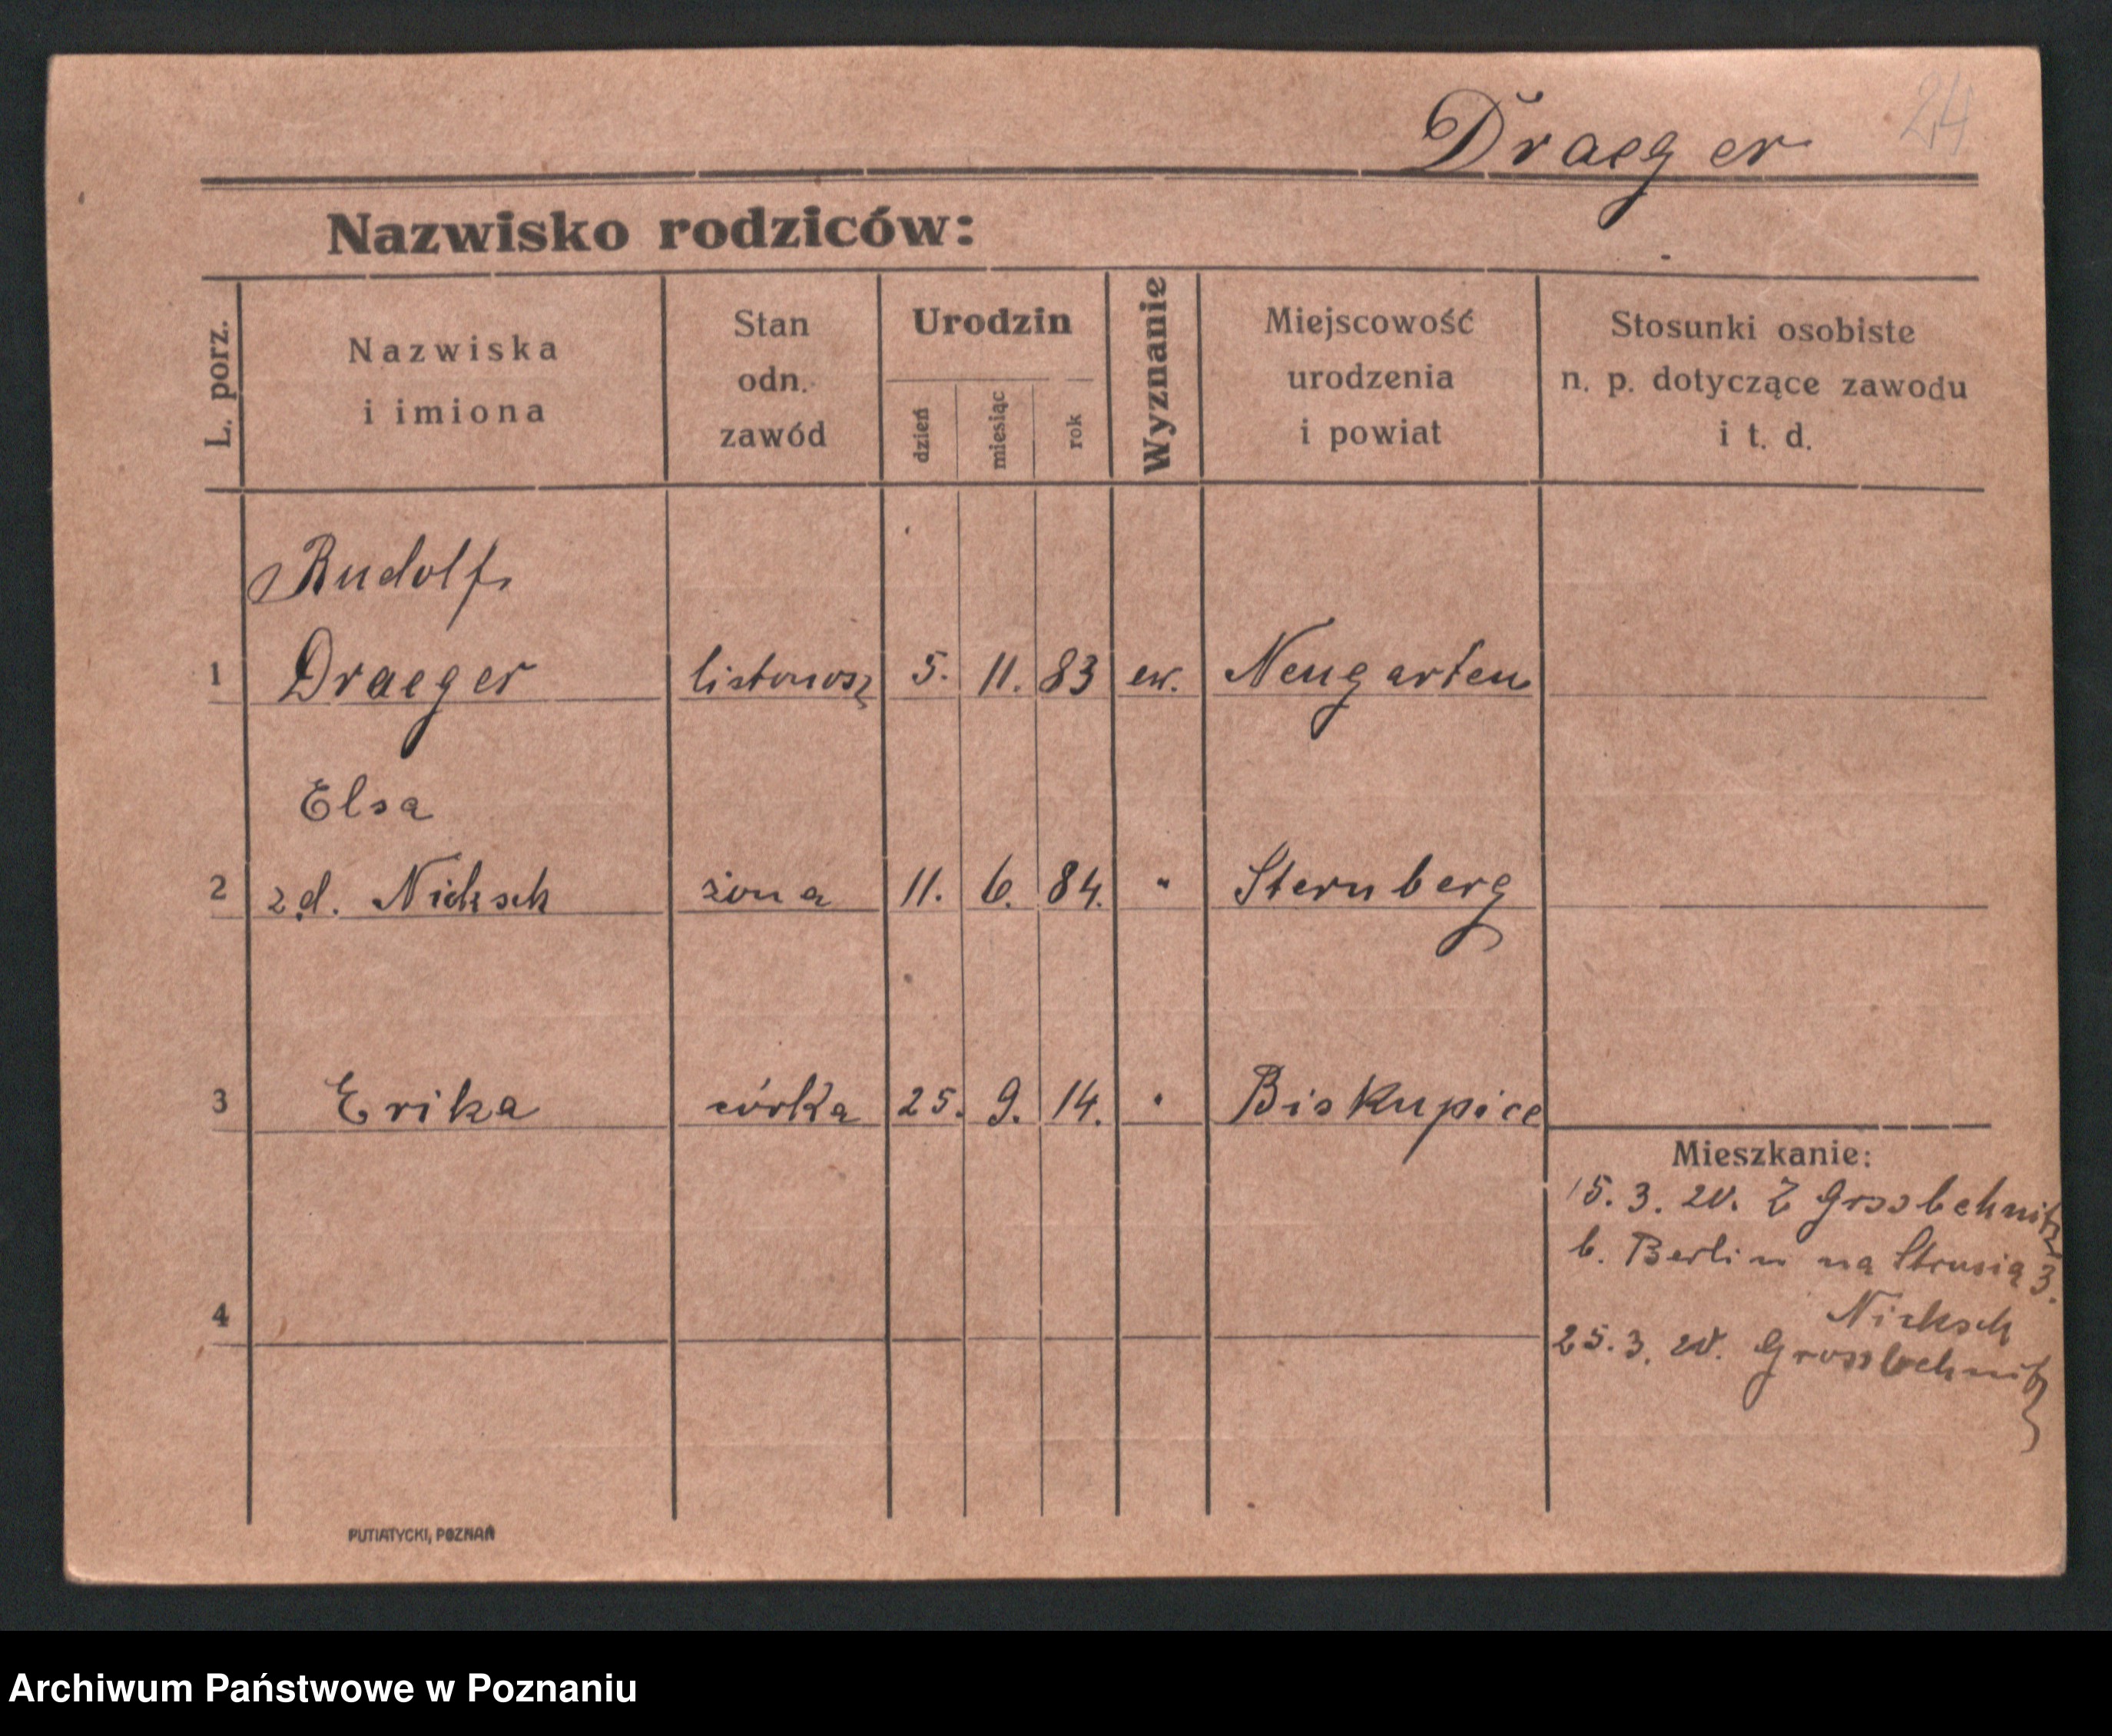 24
Draeger
Nazwisko rodziców:
L. porz.
Nazwiska
i imiona
Stan
odn.
zawód
Urodzin
dzień
miesiąc
rok
Wyznanie
Miejscowość
urodzenia
i powiat
Stosunki osobiste
n. p. dotyczące zawodu
i t. d.
Rudolf
1 Draeger listonosz 5. 11. 83 ew. Neugarten
Elsa
2 z d. Nicksch żona 11. 6. 84. " Sternberg
3 Erika córka 25. 9. 14. " Biskupice
Mieszkanie:
15. 3. 20. Z
b. Berlin na Strusią 3.
Nicksch
4
25. 3. 20.
PUTIATYCKI, POZNAŃ
Archiwum Państwowe w Poznaniu